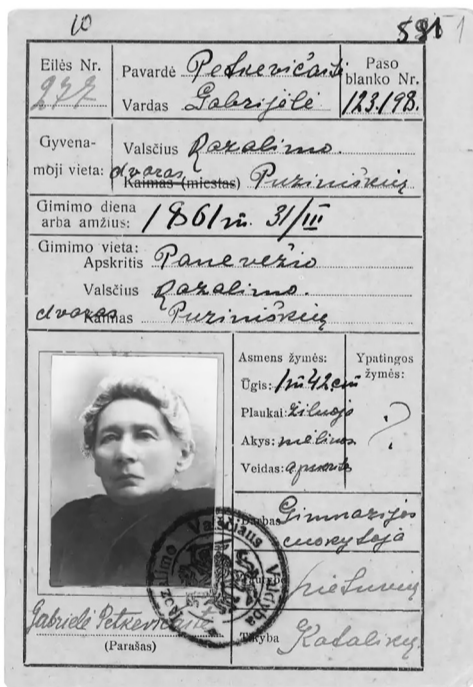 10
Eilės Nr. 277
Pavardė Petkevičaitė
Vardas Gabrijėlė
Paso blanko Nr. 123198.
Gyvenamoji vieta:
Valsčius Razalimo.
dvaras
Kaimas (miestas) Puziniškių
Gimimo diena arba amžius: 1861 m. 31/III
Gimimo vieta:
Apskritis Panevėžio
Valsčius Razalimo.
dvaras
Kaimas Puziniškių
Asmens žymės:
Ūgis: 1 m 42 cm
Plaukai: žiluoja
Akys: mėlinos
Veidas:
Ypatingos žymės:
?
Darbas Gimnazijos mokytoja
lietuvių
Tikyba Katalikų
Rozalimo Valsčiaus Valdyba
Gabrielė Petkevičaitė
(Parašas)